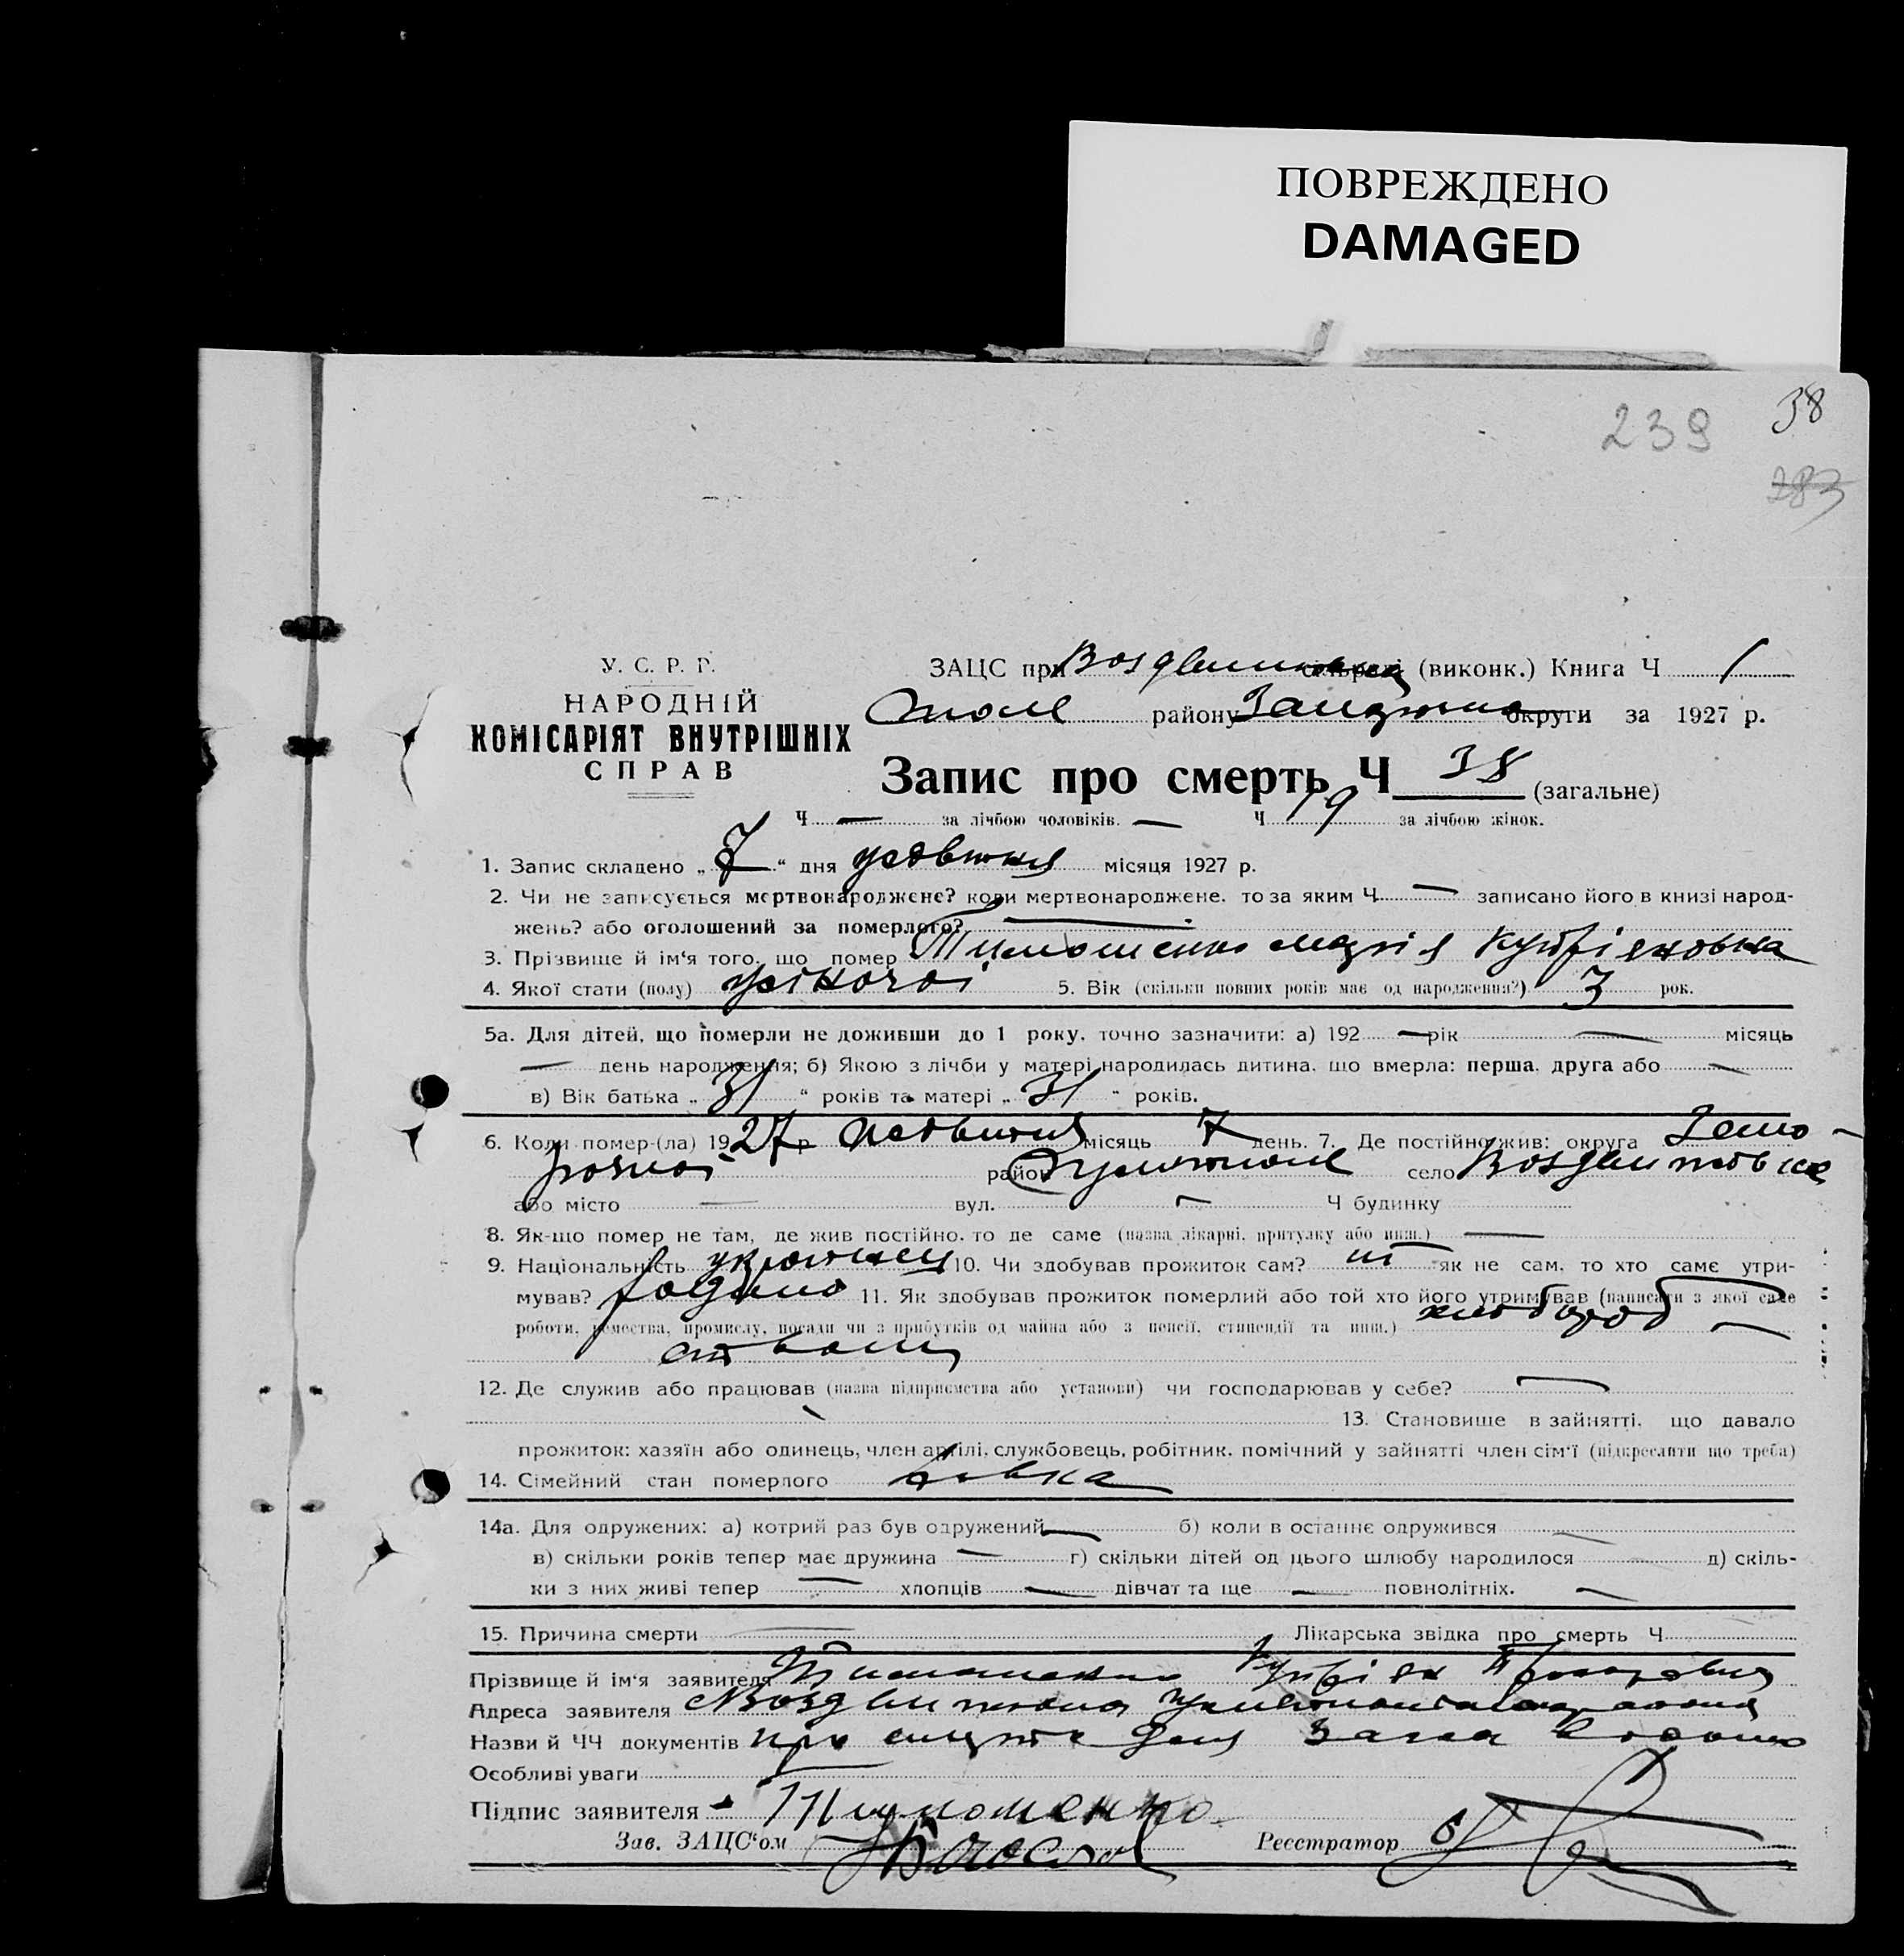 ПОВРЕЖДЕНО
DAMAGED
239 38
283
У. С. Р. Р.
НАРОДНІЙ
КОМІСАРІЯТ ВНУТРІШНІХ
СПРАВ
ЗАЦС при сільраді (виконк.) Книга Ч 1
району округи за 1927 р.
Запис про смерть Ч 38 (загальне)
Ч — за лічбою чоловіків. — Ч 19 за лічбою жінок.
1. Запис складено „ 7 “ дня жовтня місяця 1927 р.
2. Чи не записується мертвонароджене? коли мертвонароджене, то за яким Ч — записано його в книзі народ-
жень? або оголошений за померлого?
3. Прізвище й ім‘я того, що помер Тимошенко Марія Купріяновна
4. Якої стати (полу) жіночої 5. Вік (скільки повних років має од народження?) 3 рок.
5а. Для дітей, що померли не доживши до 1 року, точно зазначити: а) 192 — рік — місяць
— день народження; б) Якою з лічби у матері народилась дитина, що вмерла: перша, друга або —
в) Вік батька „ 31 “ років та матері „ 31 “ років.
6. Коли помер-(ла) 1927 р. жовтня місяць 7 день. 7. Де постійно жив: округа
район село Воздвижовка
або місто — вул. — Ч будинку
8. Як-що помер не там, де жив постійно, то де саме (назва лікарні, притулку або инш.) —
9. Національність 10. Чи здобував прожиток сам? ні як не сам, то хто саме утри-
мував? 11. Як здобував прожиток померлий або той хто його утримував (написати з якої саме
роботи, ремества, промислу, посади чи з прибутків од майна або з пенсії, стипендії та инш.) хлібороб —
ством
12. Де служив або працював (назва підприємства або установи) чи господарював у себе? —
13. Становище в зайнятті, що давало
прожиток: хазяїн або одинець, член артілі, службовець, робітник, помічний у зайнятті член сім‘ї (підкреслити що треба)
14. Сімейний стан померлого
14а. Для одружених: а) котрий раз був одружений — б) коли в останнє одружився —
в) скільки років тепер має дружина — г) скільки дітей од цього шлюбу народилося — д) скіль-
ки з них живі тепер — хлопців — дівчат та ще — повнолітніх. —
15. Причина смерти — Лікарська звідка про смерть Ч
Прізвище й ім‘я заявителя Тимошенко Купріян
Адреса заявителя
Назви й ЧЧ документів про смерть для Загса
Особливі уваги
Підпис заявителя - Тимошенко
Зав. ЗАЦС‘ом Реєстратор